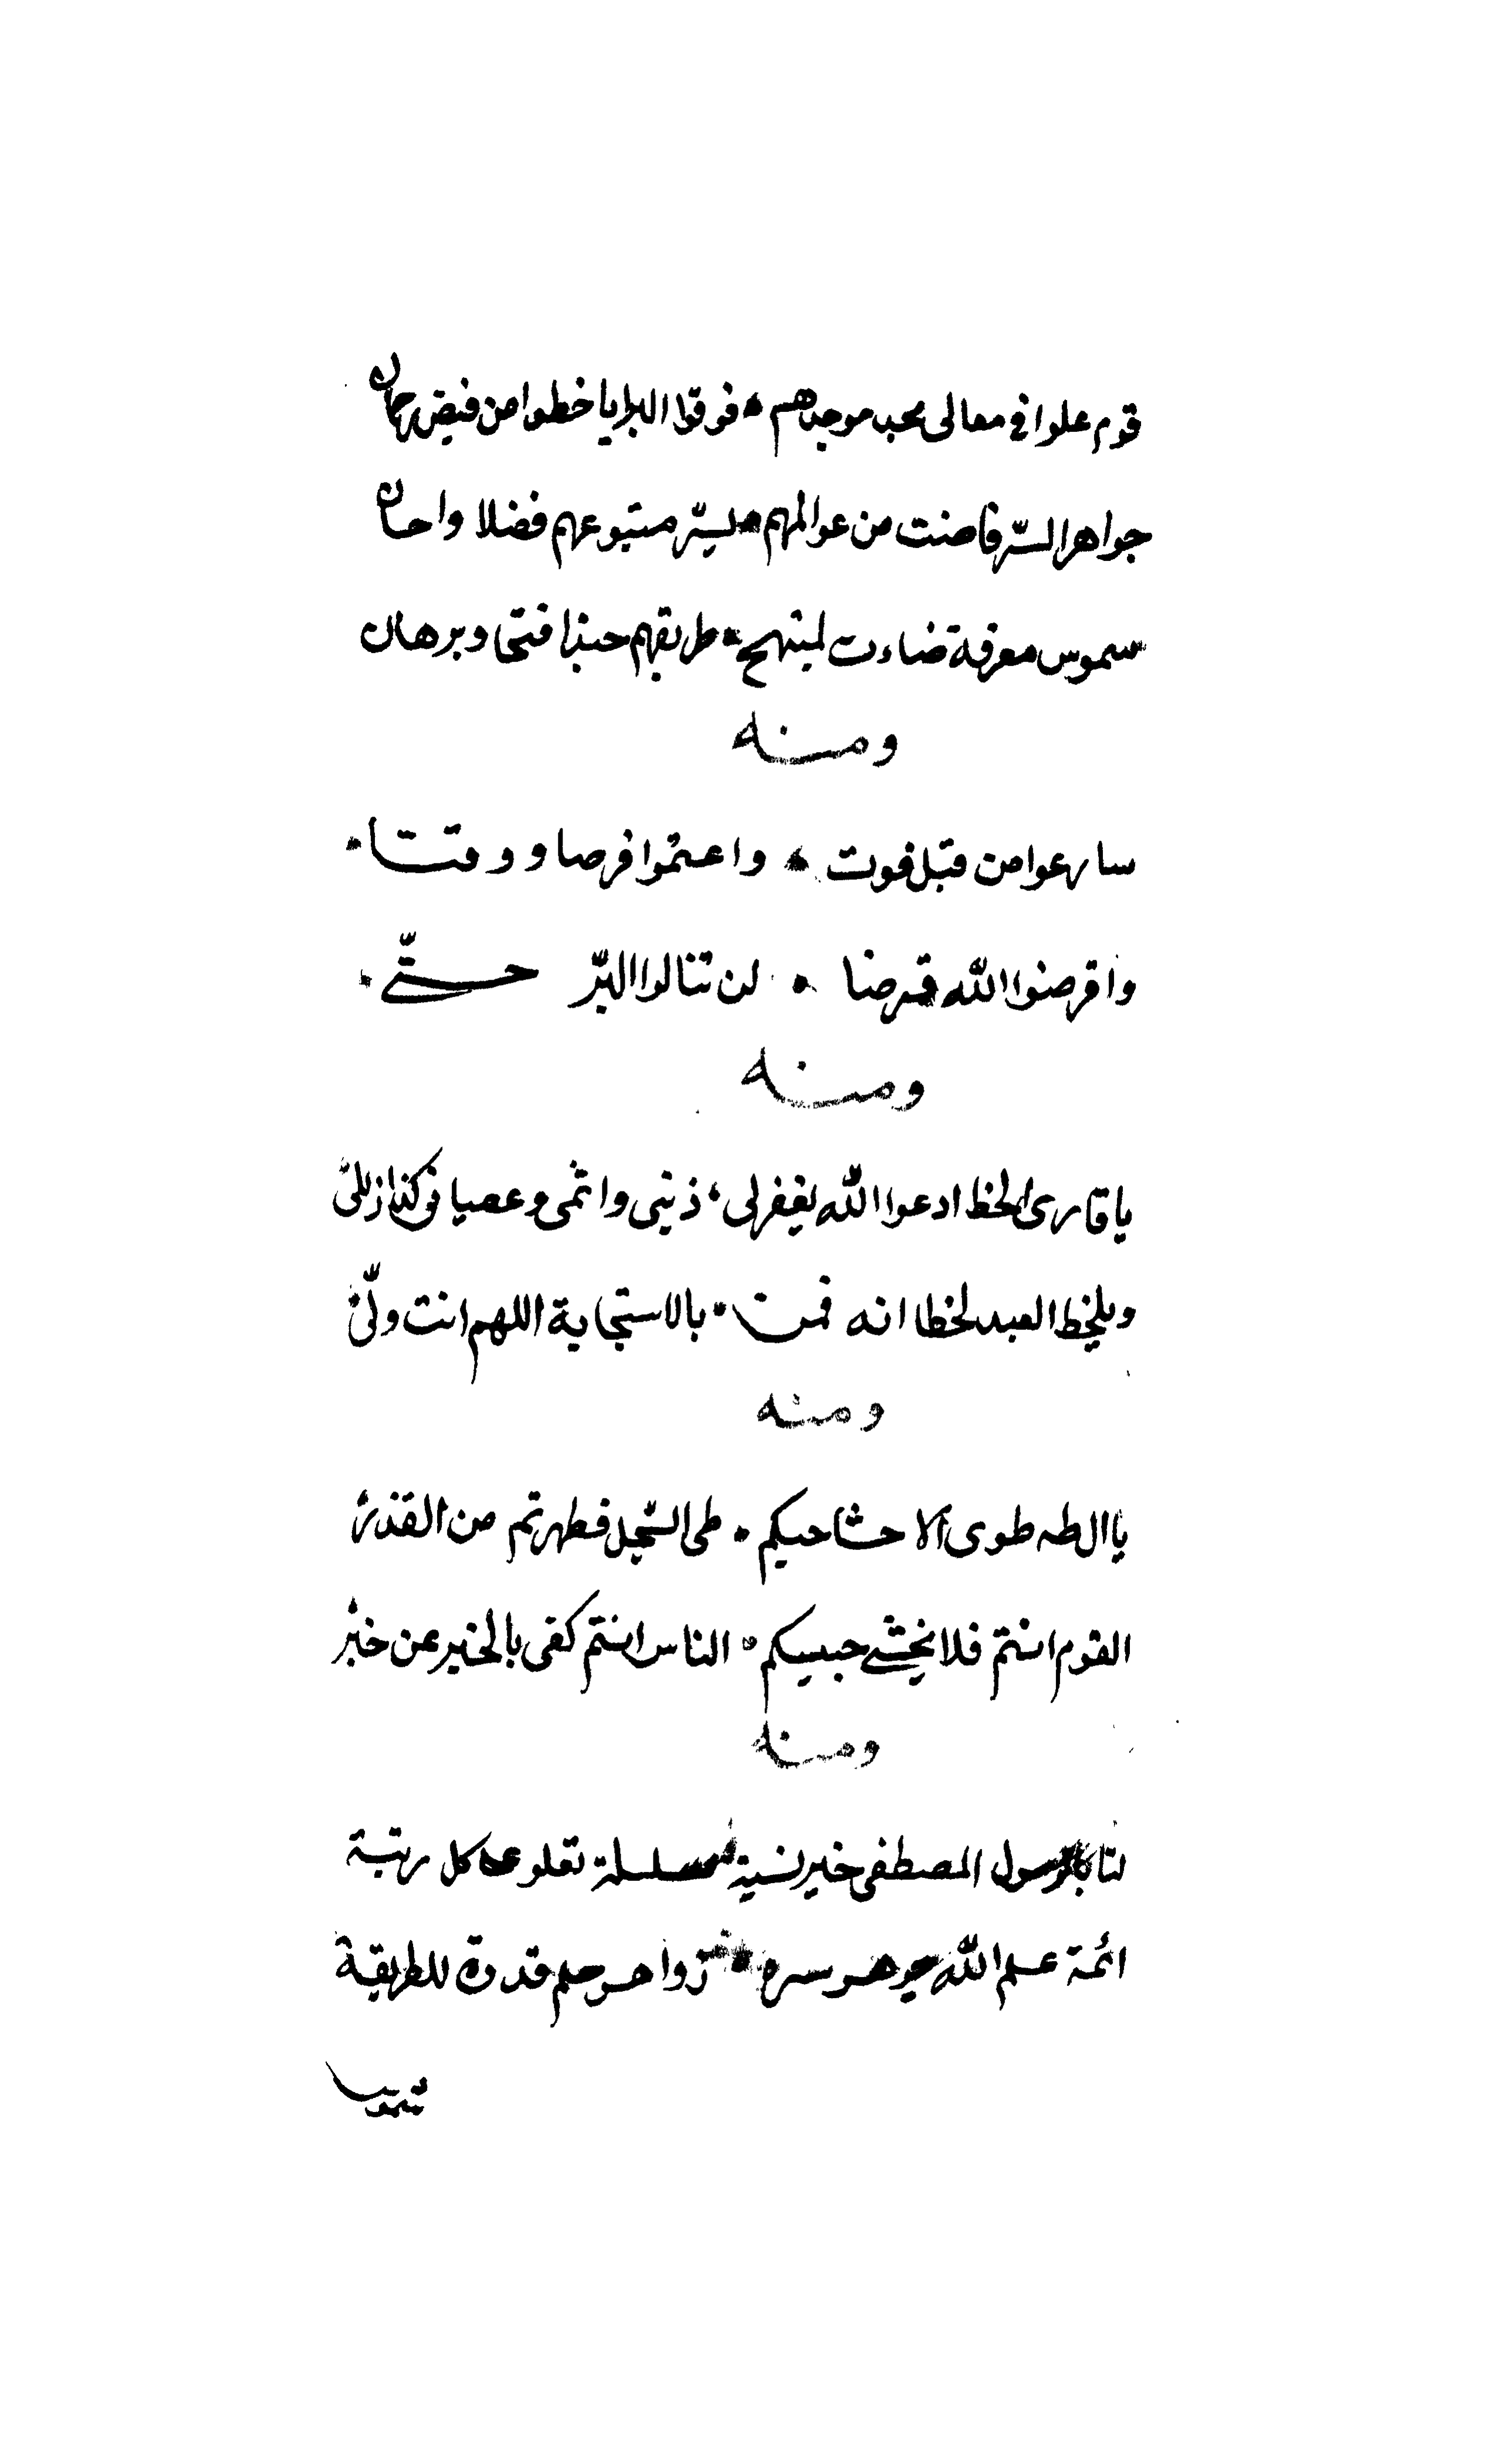 قوم علوا في معالى مجد موجدهم * فوقوا البرايا خطوا من فيض رحمان
جواهر السّر فاضت من عوالمهم * بسرّ متبوعهم فضلا واحسان
شموس معرفة ضاءت لمبتهج * طريقهم حبذا فتحا وبرهان
ومنه
سارعوا من قبل فوت * واغتموا فرصا ووقتا *
واقرضوا الله قرضا * لن تنالوا البّر حتّى *
ومنه
يا قارى الخط ادعوا الله يغفر لى * ذنبى واثمى وعصيانى كذا زللى
ويلخط العبد لخطا انه قمن * بالاستجابة اللهم انت ولّى
ومنه
يا ال طه طوى الاحشا حبكم * طى السّجل فطهرتم من القذر
القوم انتم فلا يخشى حبيبكم * الناس انتم كفى بالخبر عن خبر
ومنه
لنا بالرسول المصطفى خير نسبة مسلسلة تعلو على كل رتبة
ائمة علم الله جوهر سره * زواخر حلم قدوة للطريقة